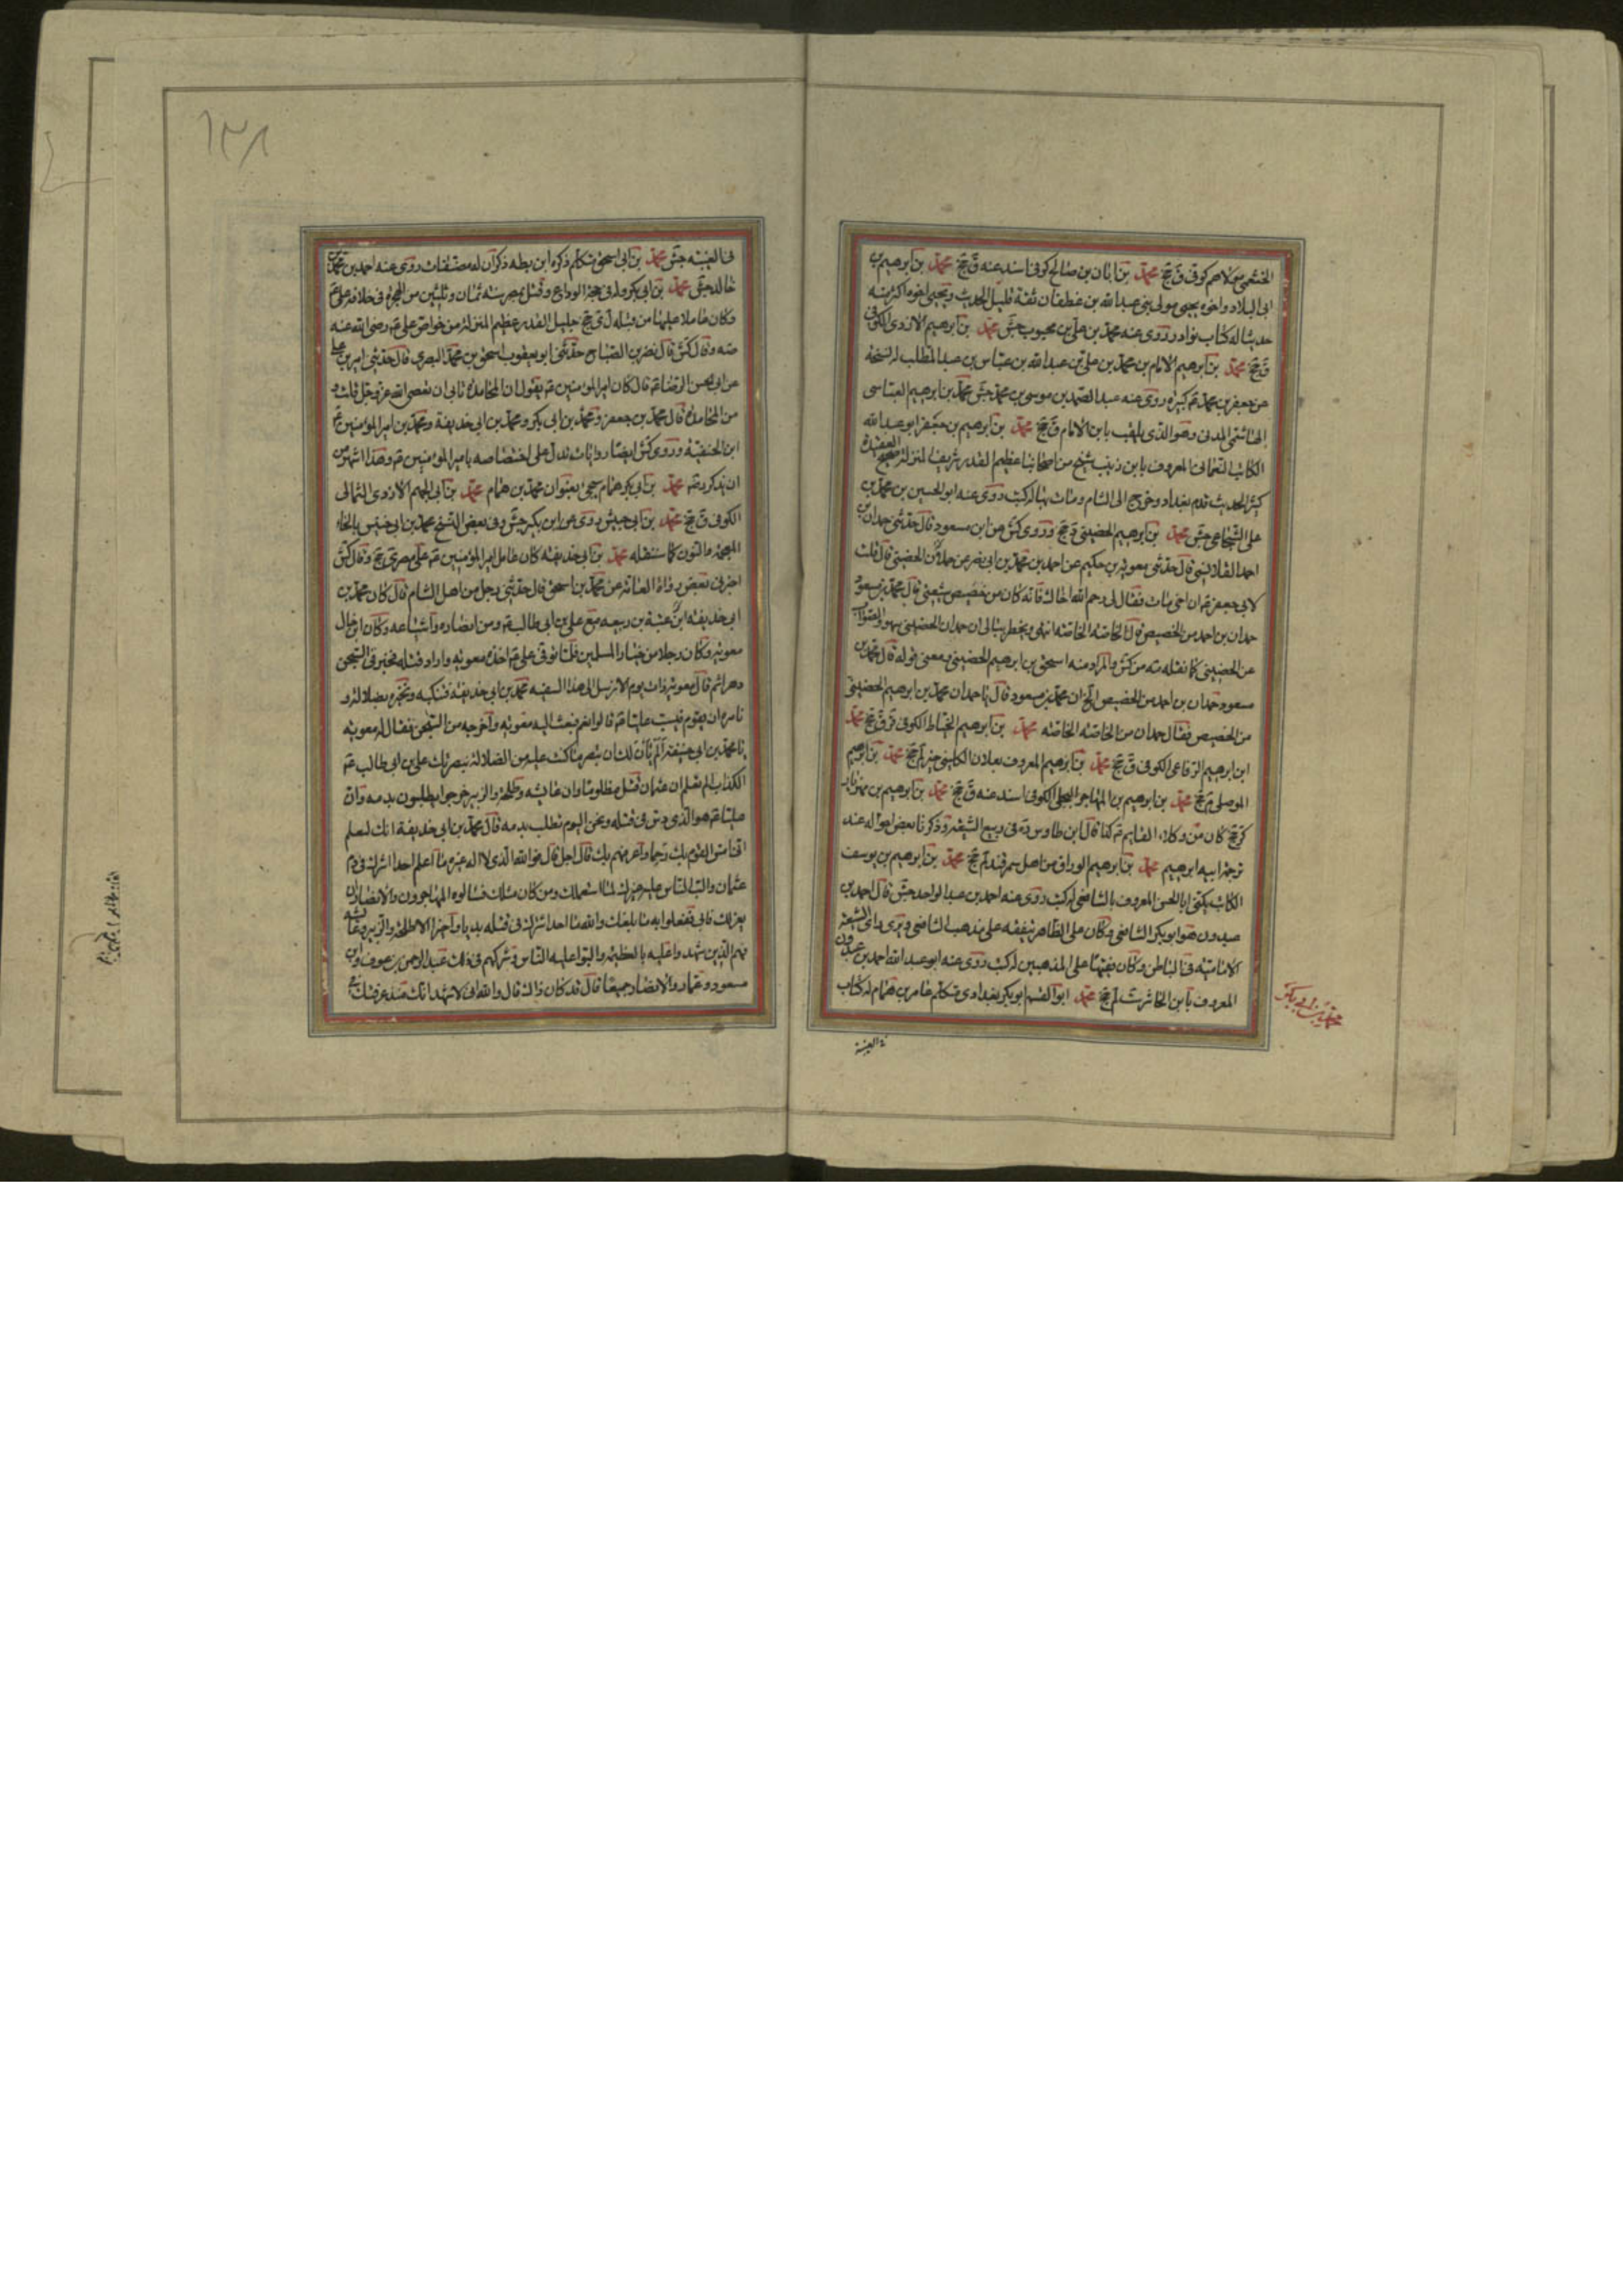 الخثعمي مولاهم كوفي ق جخ محمد بن ابان بن صالح كوفي اسند عنه ق جخ محمد بن ابرهيم بن
ابي البلاد واخوه يحيى مولى بني عبد الله بن غطفان ثقة قليل الحديث ويحيى اخوه اكثر منه
حديثا له كتاب نوادر روى عنه محمد بن علي بن محبوب جش محمد بن ابرهيم الازدي الكوفي
ق جخ محمد بن ابرهيم الامام بن محمد بن علي بن عبد الله بن عباس بن عبد المطلب له نسخة
عن جعفر بن محمد ع كبيرة روى عنه عبد الصمد بن موسى بن محمد جش محمد بن ابرهيم العباسي
الهاشمي المدني وهو الذي يلقب بابن الامام ق جخ محمد بن ابرهيم بن جعفر ابو عبد الله
الكاتب النعماني المعروف بابن زينب شيخ من اصحابنا عظيم القدر شريف المنزلة صحيح العقيدة
كثير الحديث قدم بغداد وخرج الى الشام ومات بها له كتب روى عنه ابو الحسين بن محمد بن
علي الشجاعي جش محمد بن ابرهيم الحضيني د جخ وروى كش عن ابن مسعود قال حدثني حمدان بن
احمد القلانسي قال حدثني معوية بن حكيم عن احمد بن محمد بن ابي نصر عن حمدان الحضيني قال قلت
لابي جعفر ع ان اخي مات فقال لي رحم الله اخاك فانه كان من خصيص شيعتي قال محمد بن مسعود
حمدان بن احمد من الخصيص قال الخاصة الخاصة انتهى ويخطر ببالي ان حمدان الحضيني سهو والصواب
عن الحضيني كما نقله مه من كش والمراد منه اسحق بن ابرهيم الحضيني ومعنى قوله قال محمد بن
مسعود حمدان بن احمد من الخصيص الخ ان محمد بن مسعود قال يا حمدان محمد بن ابرهيم الحضيني
من الخصيص فقال حمدان من الخاصة الخاصة محمد بن ابرهيم الخياط الكوفي ق جخ محمد
ابن ابرهيم الرفاعي الكوفي ق جخ محمد بن ابرهيم المعروف بعلان الكليني خير لم جخ محمد بن ابرهيم
الموصلي جخ محمد بن ابرهيم بن المهاجر البجلي الكوفي اسند عنه ق جخ محمد بن ابرهيم بن مهزيار
كر جخ كان من وكلاء القايم ع كذا قال ابن طاوس ره في ربيع الشيعة وذكرنا بعض احواله عند
ترجمة ابيه ابرهيم محمد بن ابرهيم الوراق من اهل سمرقند لم جخ محمد بن ابرهيم بن يوسف
الكاتب يكنى ابا الحسن المعروف بالشافعي له كتب روى عنه احمد بن عبد الواحد جش قال احمد بن
عبدون هو ابو بكر الشافعي وكان على الظاهر يتفقه على مذهب الشافعي ويرى راي الشيعة
الامامية في الباطن وكان فقيها على المذهبين له كتب روى عنه ابو عبد الله احمد بن عبدون
المعروف بابن الحاشر ست لم جخ محمد ابو القسم ابو بكر بغدادي متكلم عاصر بن همام له كتاب
في الغيبة
محمد بن ابي بكر
١٣٨
في الغيبة جش محمد بن ابي اسحق متكلم ذكره ابن بطه ذكر ان له مصنفات روى عنه احمد بن محمد بن
خالد جش محمد بن ابي بكر ولد في حجة الوداع وقتل بمصر سنة ثمان وثلثين من الهجرة في خلافة علي ع
وكان عاملا عليها من قبله ل ي جخ جليل القدر عظيم المنزلة من خواص علي ع رضي الله عنه
صه وقال كش قال نصر بن الصباح حدثني ابو يعقوب اسحق بن محمد البصري قال حدثني امير بن علي
عن ابي الحسن الرضا ع قال كان امير المؤمنين ع يقول ان المحامدة تابى ان يعصى الله عز وجل قلت و
من المحامدة قال محمد بن جعفر ومحمد بن ابي بكر ومحمد بن ابي حذيفة ومحمد بن امير المؤمنين ع
ابن الحنفية وروى كش ايضا روايات تدل على اختصاصه بامير المؤمنين ع وهذا اشهر من
ان يذكر محمد بن ابي بكر همام سيجيء بعنوان محمد بن همام محمد بن ابي الجهم الازدي الثمالي
الكوفي ق جخ محمد بن ابي حبش روى عن ابن بكير جش وفي بعض النسخ محمد بن ابي خنيس بالخاء
المعجمة والنون كما سننقله محمد بن ابي حذيفة كان عامل امير المؤمنين ع على مصر ي جخ وقال كش
اخبرني بعض رواة العامة عن محمد بن اسحق قال حدثني رجل من اهل الشام قال كان محمد بن
ابي حذيفة ابن عتبة بن ربيعه مع علي بن ابي طالب ع ومن انصاره واشياعه وكان ابن خال
معوية وكان رجلا من خيار المسلمين فلما توفي علي ع اخذه معوية واراد قتله فحبس في السجن
دهرا ثم قال معوية ذات يوم الا نرسل الى هذا السفيه محمد بن ابي حذيفة فنبكته ونخبره بضلالته و
نامره ان يقوم فيسب عليا ع قالوا نعم فبعث اليه معوية واخرجه من السجن فقال له معوية
يا محمد بن ابي حذيفة الم يان لك ان تبصر ما كنت عليه من الضلالة بنصرتك علي بن ابي طالب ع
الكذاب الم تعلم ان عثمان قتل مظلوما وان عايشه وطلحة والزبير خرجوا يطلبون بدمه وان
عليا ع هو الذي دس في قتله ونحن اليوم نطلب بدمه قال محمد بن ابي حذيفة انك لتعلم
اني امس القوم بك رحما واعرفهم بك قال اجل قال فوالله الذي لا اله غيره ما اعلم احدا اشرك في دم
عثمان والب الناس عليه غيرك لما استعملك ومن كان مثلك فساله المهاجرون والانصار ان
يعزلك فابى ففعلوا به ما بلغك ووالله ما احد اشرك في قتله بديا واخيرا الا طلحة والزبير وعايشه
فهم الذين شهدوا عليه بالعظيمة والبوا عليه الناس وشركهم في ذلك عبد الرحمن بن عوف وابن
مسعود وعمار والانصار جميعا قال قد كان ذاك قال والله اني لاشهد انك منذ عرفتك في